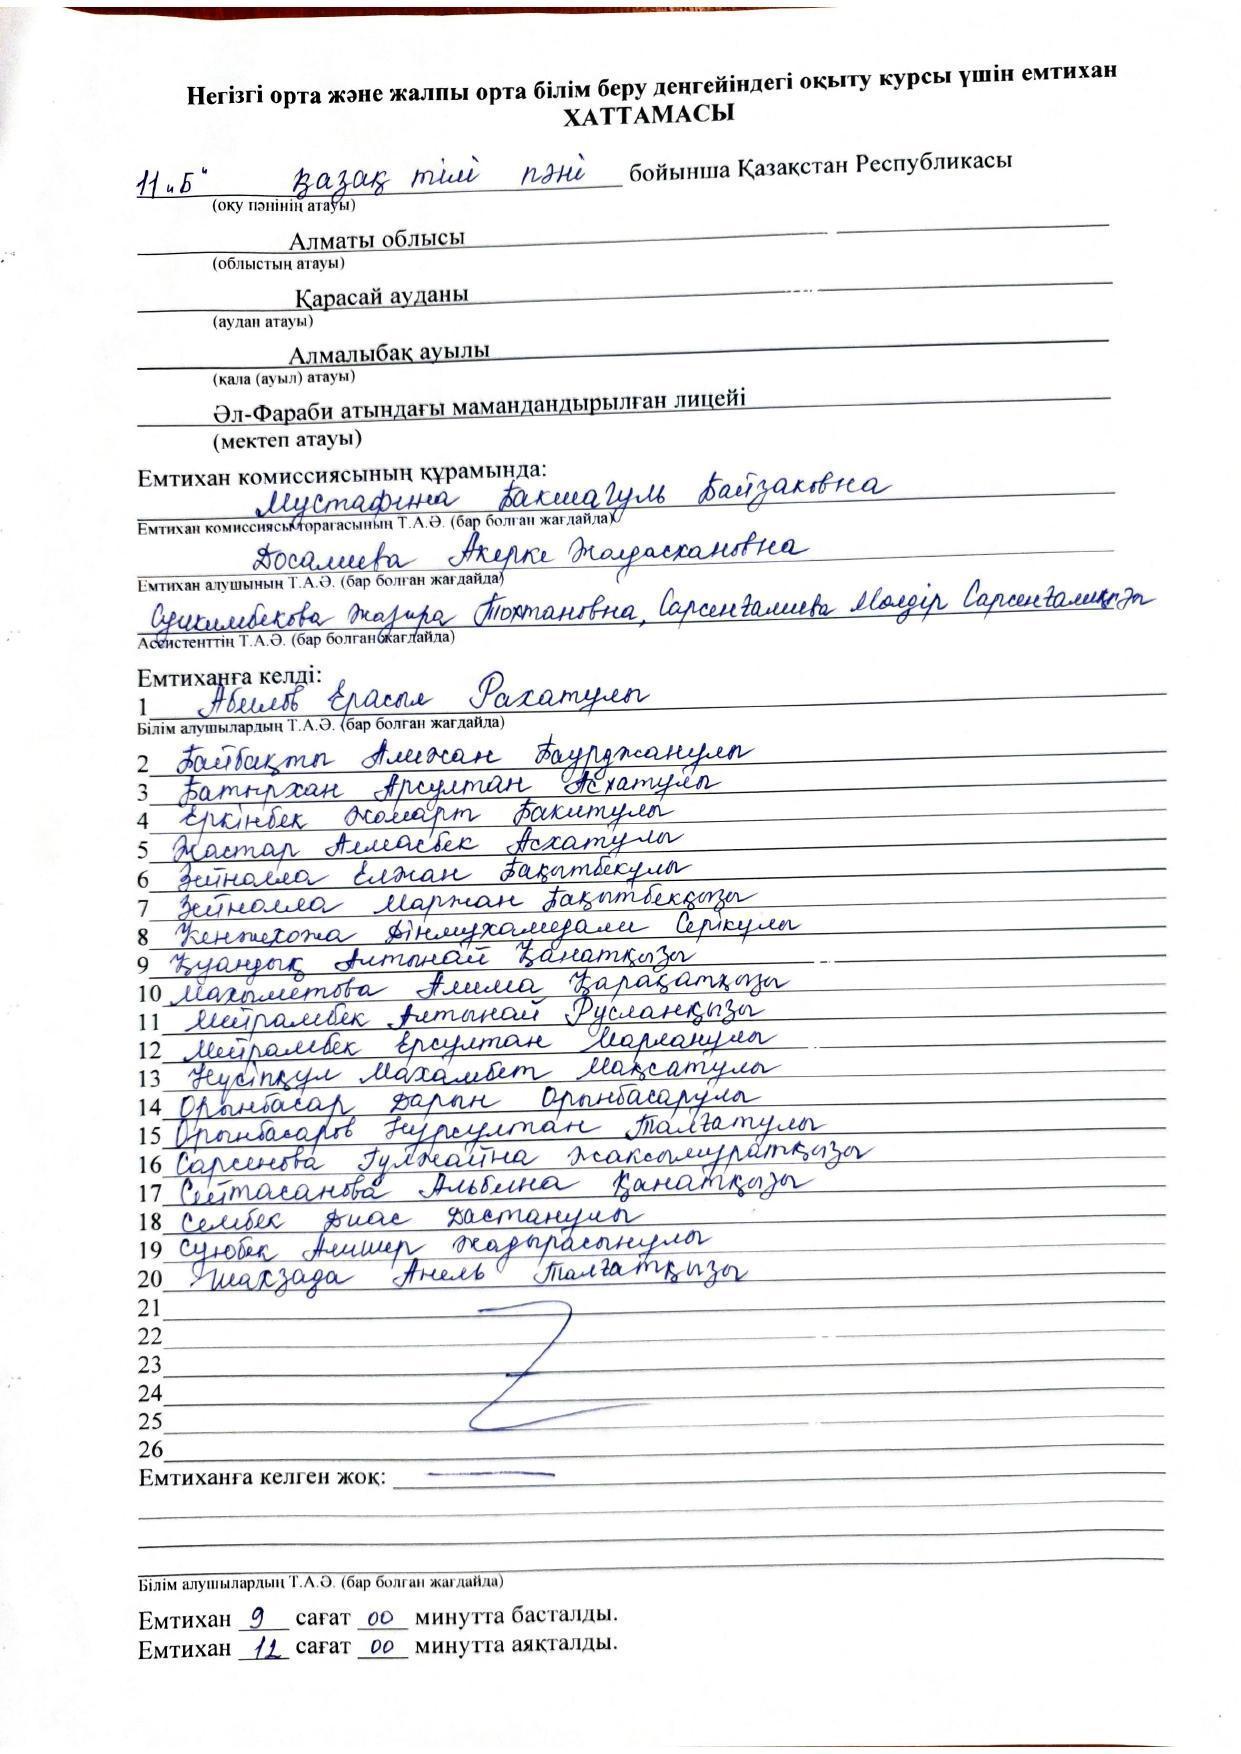 Негізгі орта және жалпы орта білім беру деңгейіндегі оқыту курсы үшін емтихан
ХАТТАМАСЫ
11 "Б" қазақ тілі пәні бойынша Қазақстан Республикасы
(оқу пәнінің атауы)
Алматы облысы
(облыстың атауы)
Қарасай ауданы
(аудан атауы)
Алмалыбақ ауылы
(қала (ауыл) атауы)
Әл-Фараби атындағы мамандандырылған лицейі
(мектеп атауы)
Емтихан комиссиясының құрамында:
Мустафина Бакшагуль Байзаковна
Емтихан комиссиясы төрағасының Т.А.Ә. (бар болған жағдайда)
Досалиева Акерке Жолдаскановна
Емтихан алушының Т.А.Ә. (бар болған жағдайда)
Суикимбекова Жазира Тохтановна, Сарсенғалиева Мөлдір Сарсенғалиқызы
Ассистенттің Т.А.Ә. (бар болған жағдайда)
Емтиханға келді:
1 Абилов Ерасыл Рахатулы
Білім алушылардың Т.А.Ә. (бар болған жағдайда)
2 Байбақты Алижан Бауржанулы
3 Батырхан Арсултан Асхатулы
4 Еркінбек Жомарт Бакитулы
5 Жастар Алмасбек Асхатулы
6 Зейнолла Елжан Бақытбекулы
7 Зейнолла Маржан Бақытбекқызы
8 Кенжехожа Дінмухамедали Серікулы
9 Қуандық Алтынай Қанатқызы
10 Махыметова Алима Қарақатқызы
11 Мейрамбек Алтынай Русланқызы
12 Мейрамбек Ерсултан Марланулы
13 Нусіпқул Махамбет Мақсатулы
14 Орынбасар Дарын Орынбасарулы
15 Орынбасаров Нурсултан Талғатулы
16 Сарсенова Гулжайна Жаксымуратқызы
17 Сейтасанова Альбина Қанатқызы
18 Селибек Диас Дастанулы
19 Суюбек Алишер Жадырасынулы
20 Шахзада Анель Талғатқызы
21
22
23
24
25
26
Емтиханға келген жоқ:
Білім алушылардың Т.А.Ә. (бар болған жағдайда)
Емтихан 9 сағат 00 минутта басталды.
Емтихан 12 сағат 00 минутта аяқталды.